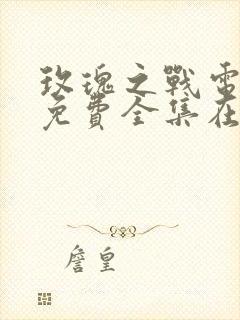 玫瑰之戰電
免費全集在
詹皇